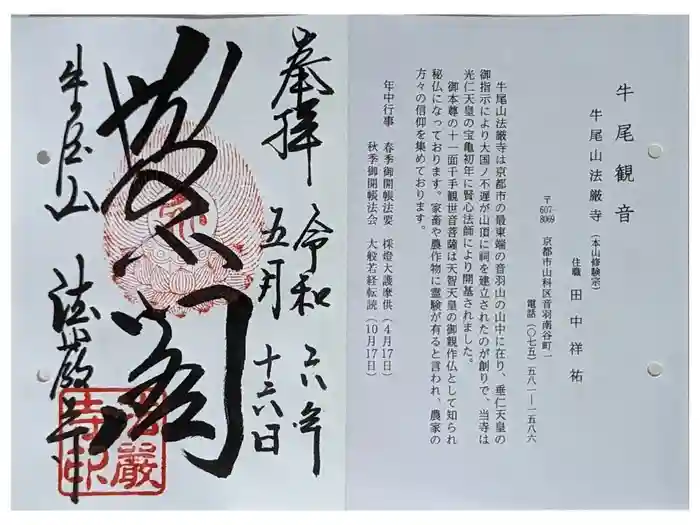 牛尾観音
牛尾山法厳寺（本山修験宗）
住職 田中祥祐
〒607-8069 京都市山科区音羽南谷町一
電話（〇七五）五八一-一五八六
牛尾山法厳寺は京都市の最東端の音羽山の山中に在り、垂仁天皇の
御指示により大国ノ不遅が山頂に祠を建立されたのが創りで、当寺は
光仁天皇の宝亀初年に賢心法師により開基されました。
御本尊の十一面千手観世音菩薩は天智天皇の御親作仏として知られ
秘仏になっております。家畜や農作物に霊験が有ると言われ、農家の
方々の信仰を集めております。
年中行事 春季御開帳法要 採燈大護摩供（4月17日）
秋季御開帳法会 大般若経転読（10月17日）
奉拝
令和六年
五月十六日
牛尾山 法厳寺
法嚴寺印